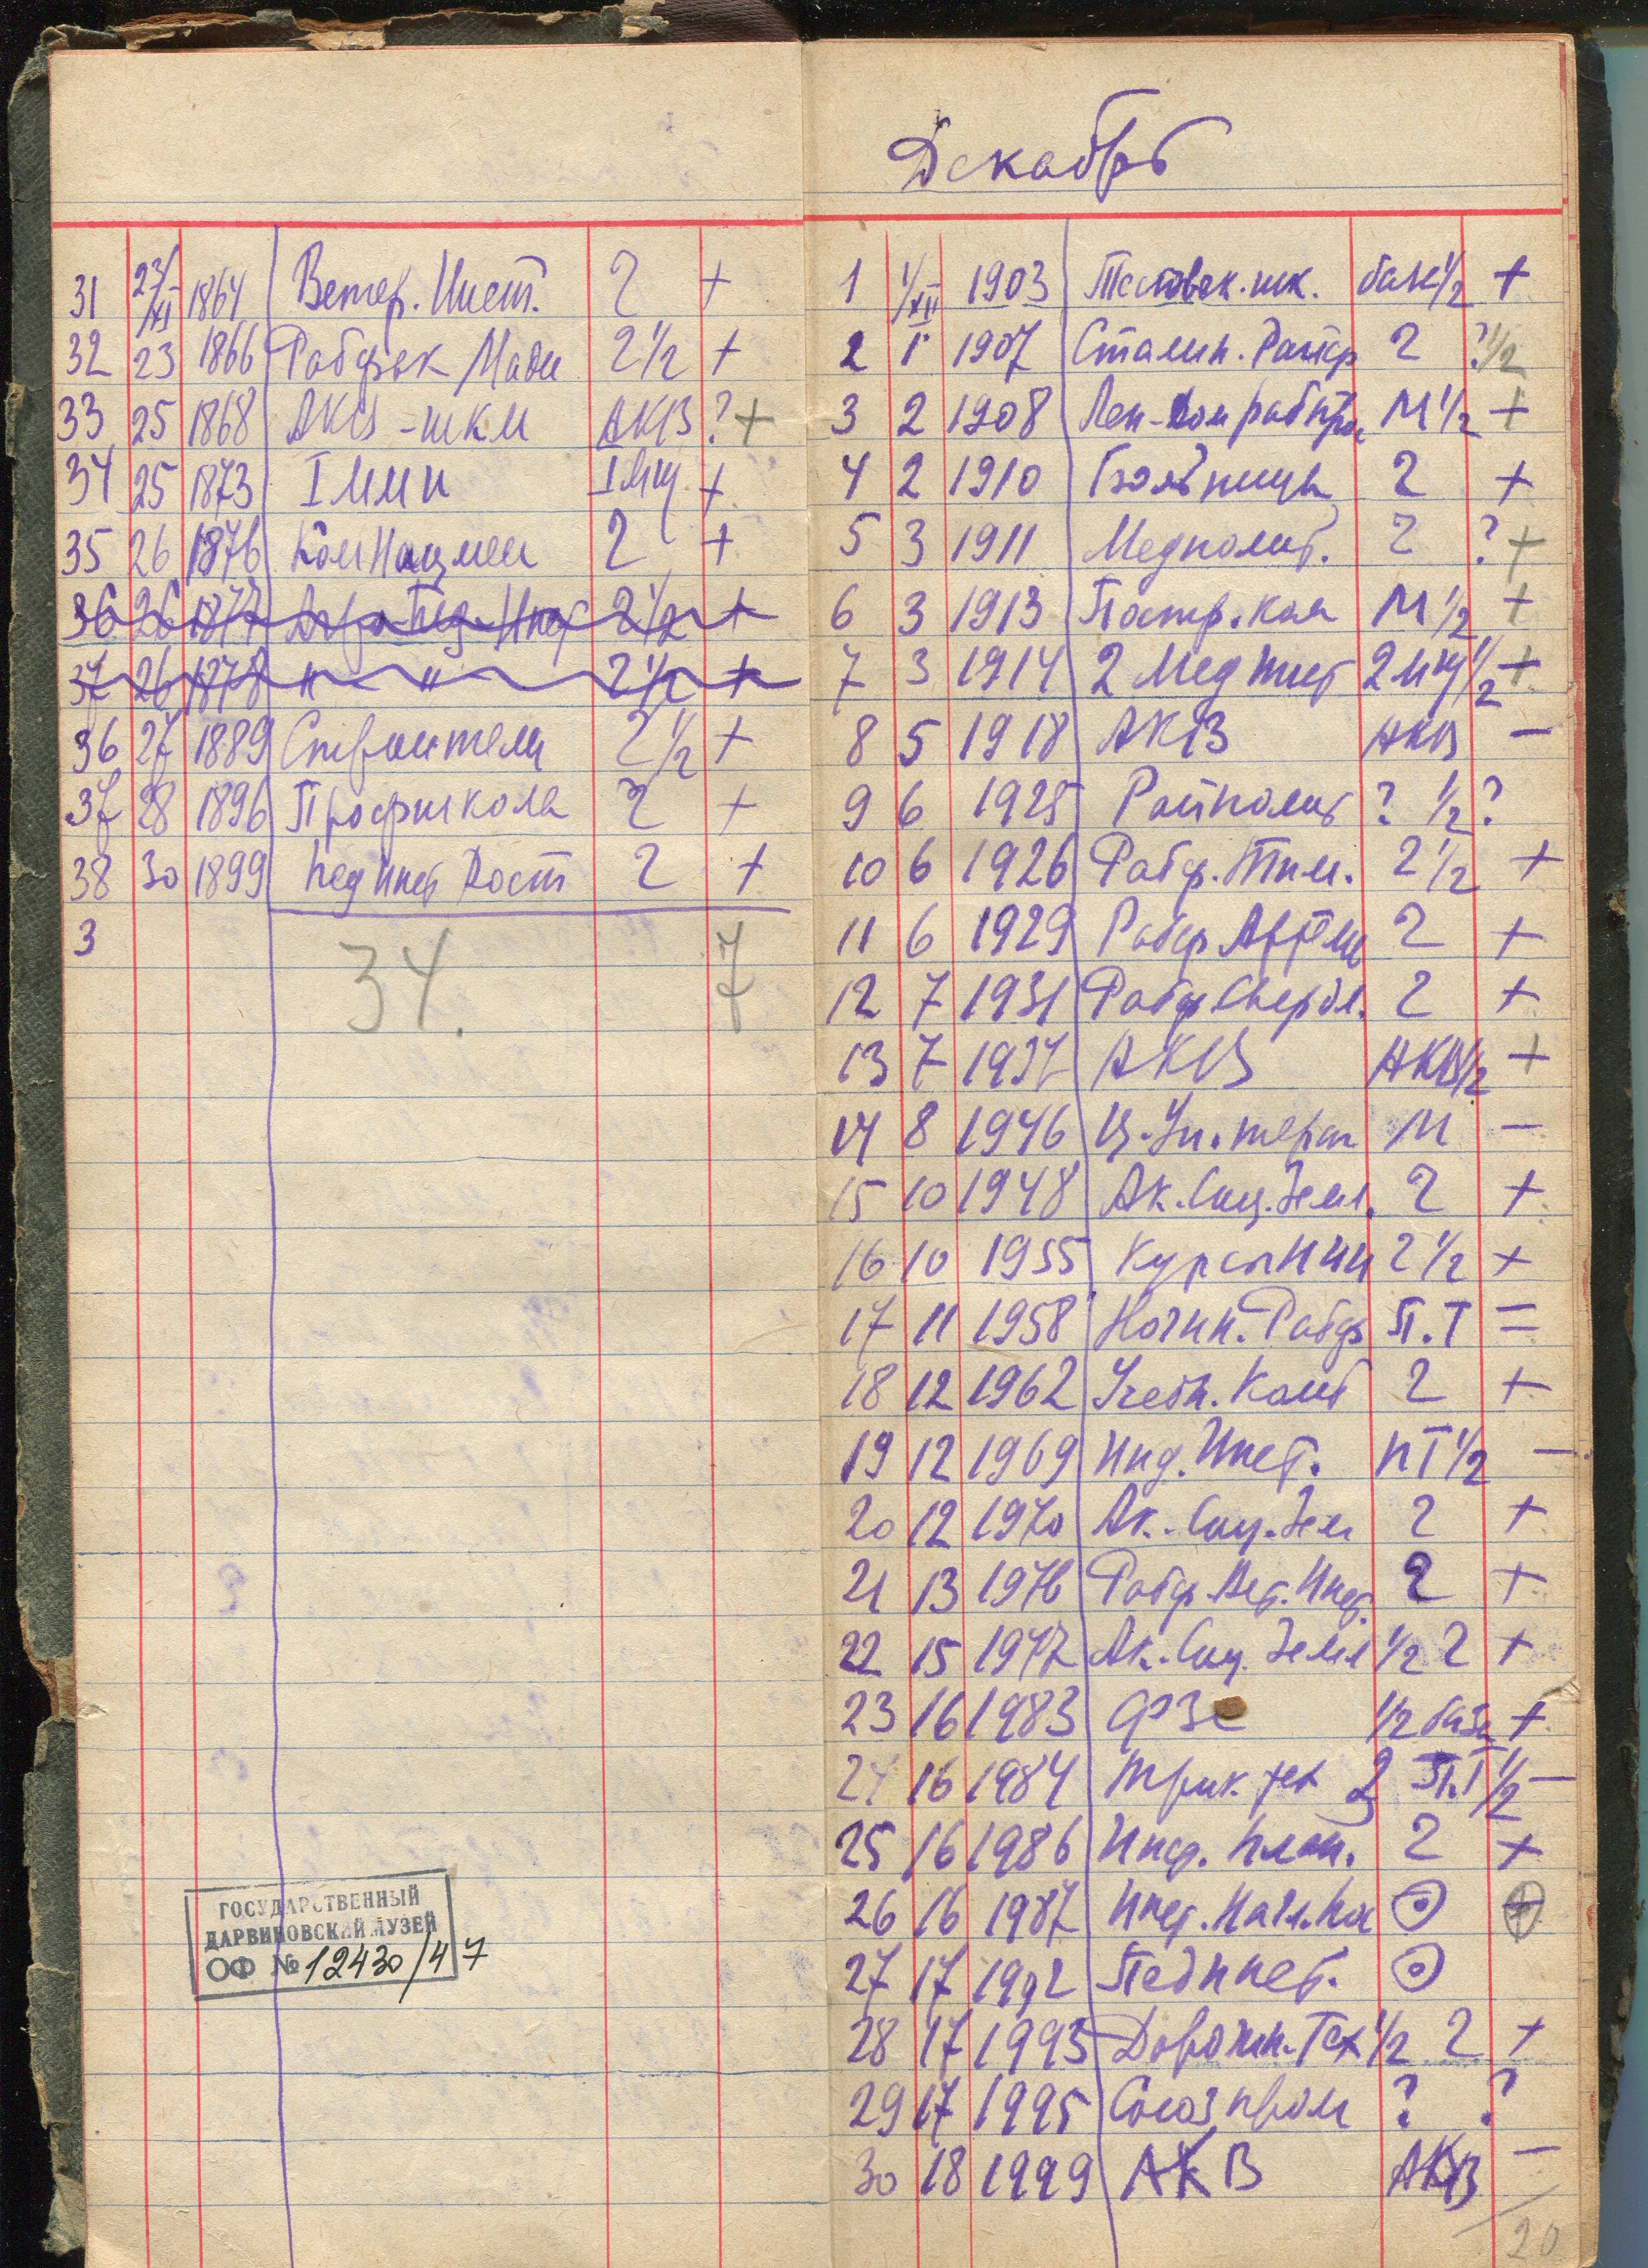 31 23/XI 1864 Ветер. Инст. 2 +
32 23 1866 Рабфак Мади 2 1/2 +
33 25 1868 АКВ - шкм АКВ ? +
34 25 1873 I ММИ I ММИ +
35 26 1876 КомНацмен 2 +
36 26 1877 2 1/2 +
37 26 1878 " " 2 1/2 +
36 27 1889 Строители 2 1/2 +
37 28 1896 Профшкола 2 +
38 30 1899 Пединст Дост 2 +
3
34. 7
ГОСУДАРСТВЕННЫЙ
ДАРВИНОВСКИЙ МУЗЕЙ
ОФ № 12430/47
Декабрь
1 1/XII 1903 шк. 1/2 +
2 1 1907 Сталин. 2 ? 1/2
3 2 1908 Лен- М 1/2 +
4 2 1910 Больница 2 +
5 3 1911 Медполит. 2 ? +
6 3 1913 М 1/2 +
7 3 1914 2 Мед Инст 1/2 +
8 5 1918 АКВ АКВ —
9 6 1925 Райполит ? 1/2 ?
10 6 1926 Рабф. Тим. 2 1/2 +
11 6 1929 Рабф 2 +
12 7 1931 Рабф Свердл. 2 +
13 7 1937 АКВ АКВ 1/2 +
14 8 1946 М —
15 10 1948 Ак. Соц. Земл. 2 +
16 10 1955 Курсы 2 1/2 +
17 11 1958 Ногин. Рабф П.Т =
18 12 1962 Учебн. Комб 2 +
19 12 1969 Инд. Инст. ПТ 1/2 —
20 12 1970 Ак. Соц. Зем 2 +
21 13 1976 Рабф. Вет. Инст. 2 +
22 15 1977 Ак. Соц. Земл 1/2 2 +
23 16 1983 ФЗС 1/2 база +
24 16 1984 Трик. тех 2 П.Т 1/2 —
25 16 1986 2 +
26 16 1987 Инст. +
27 17 1992 Пединст.
28 17 1993 Дорожн. Тех 1/2 2 +
29 17 1995 Союзпром ? ?
30 18 1999 АКВ АКВ —
20